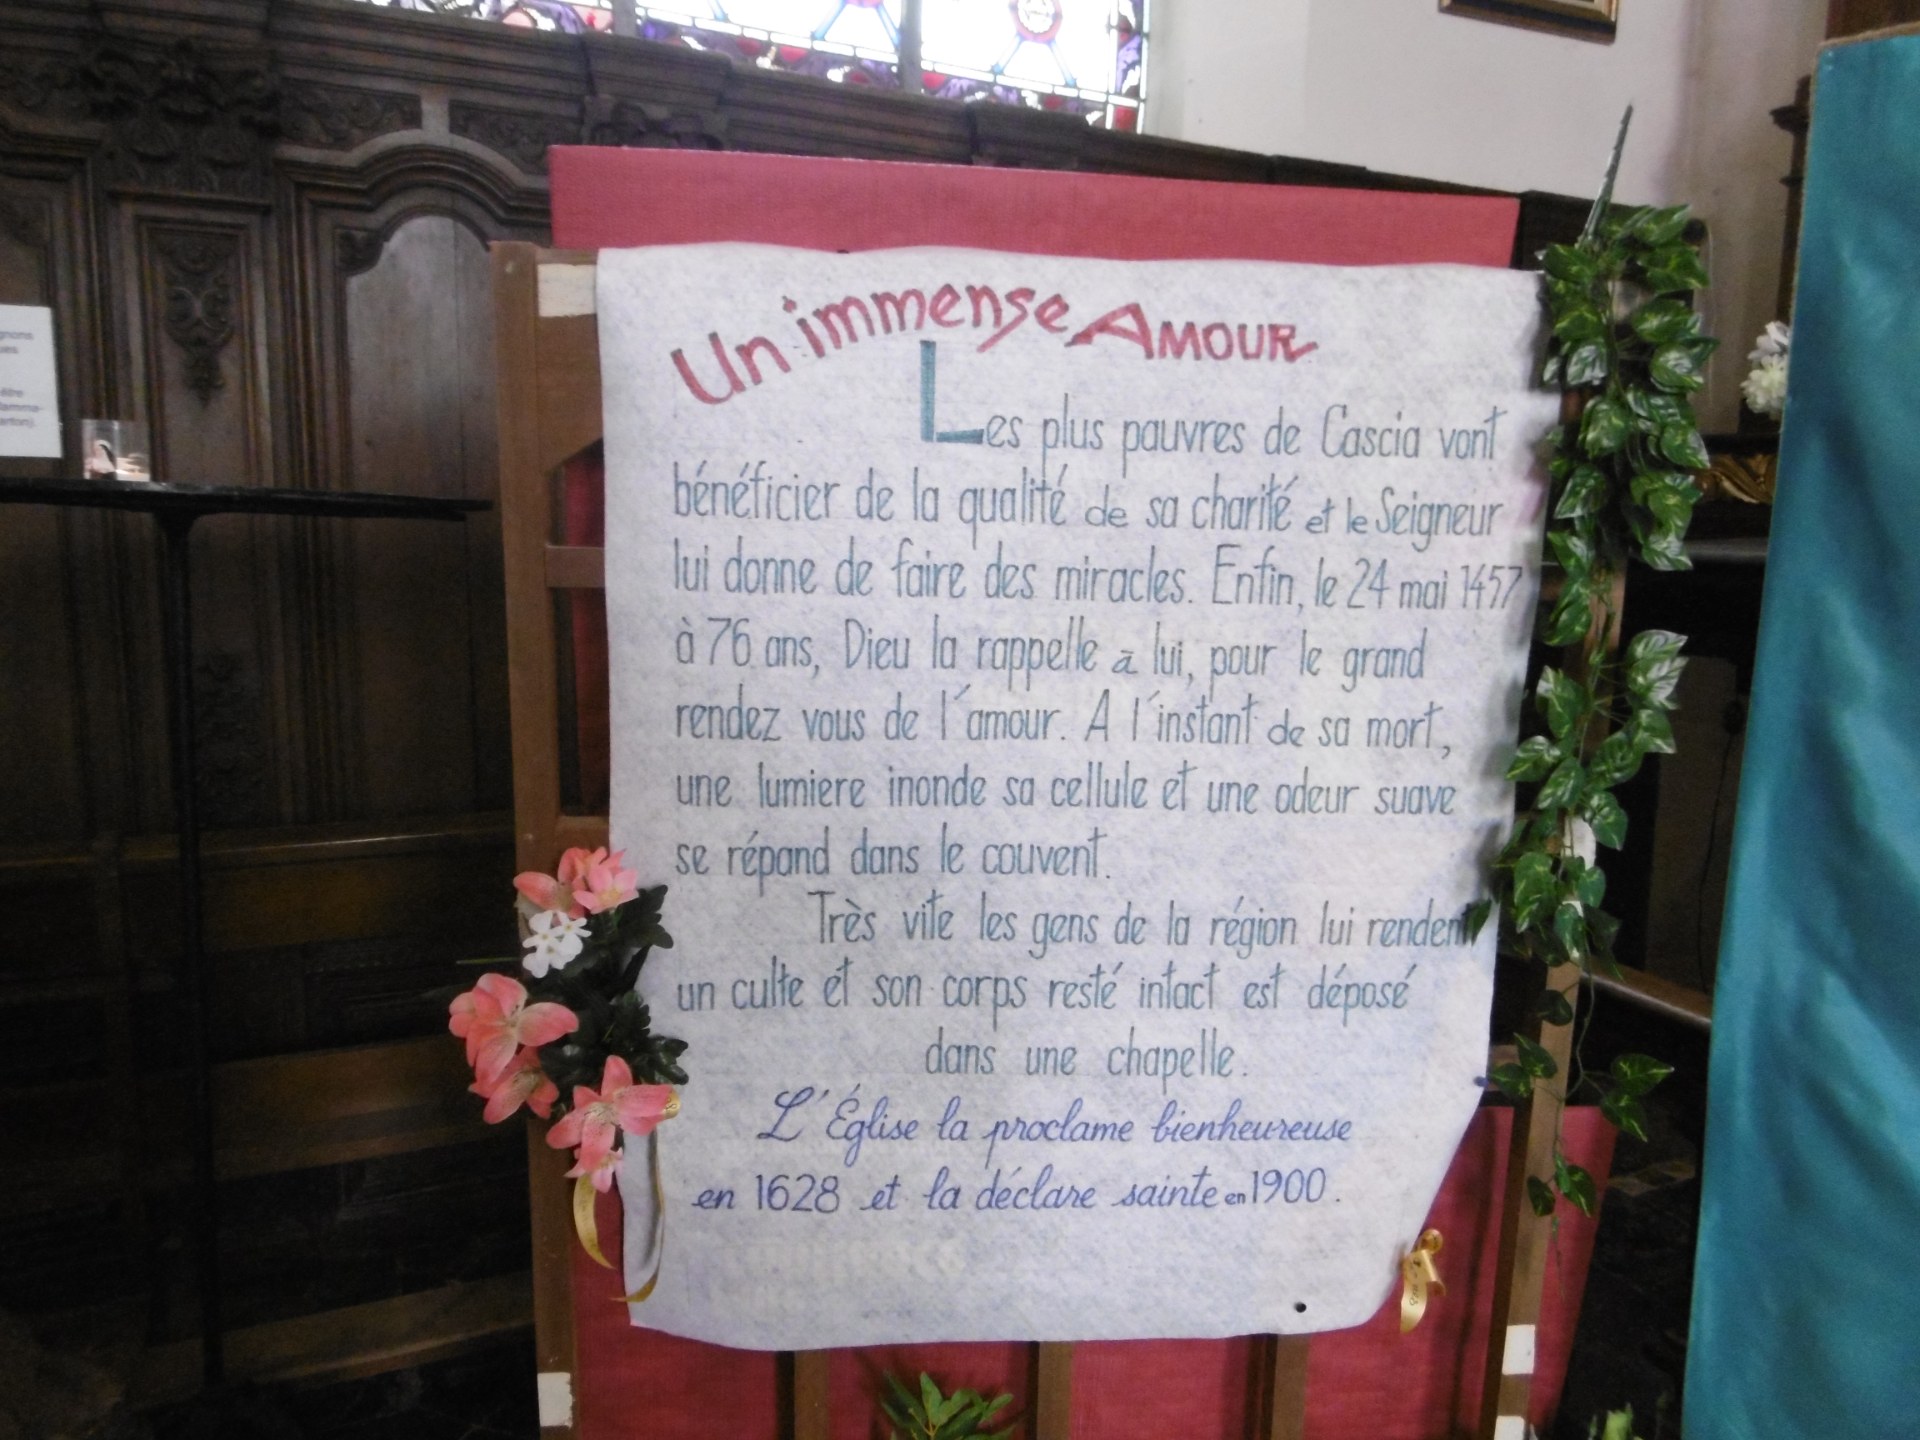 Un immense AMOUR
Les plus pauvres de Cascia vont
bénéficier de la qualité de sa charité et le Seigneur
lui donne de faire des miracles. Enfin, le 24 mai 1457
à 76 ans, Dieu la rappelle à lui, pour le grand
rendez vous de l'amour. A l'instant de sa mort,
une lumiere inonde sa cellule et une odeur suave
se répand dans le couvent.
Très vite les gens de la région lui rendent
un culte et son corps resté intact est déposé
dans une chapelle.
L'Église la proclame bienheureuse
en 1628 et la déclare sainte en 1900.